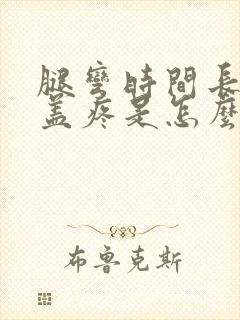 腿彎時間長
蓋疼是怎麼
布魯克斯